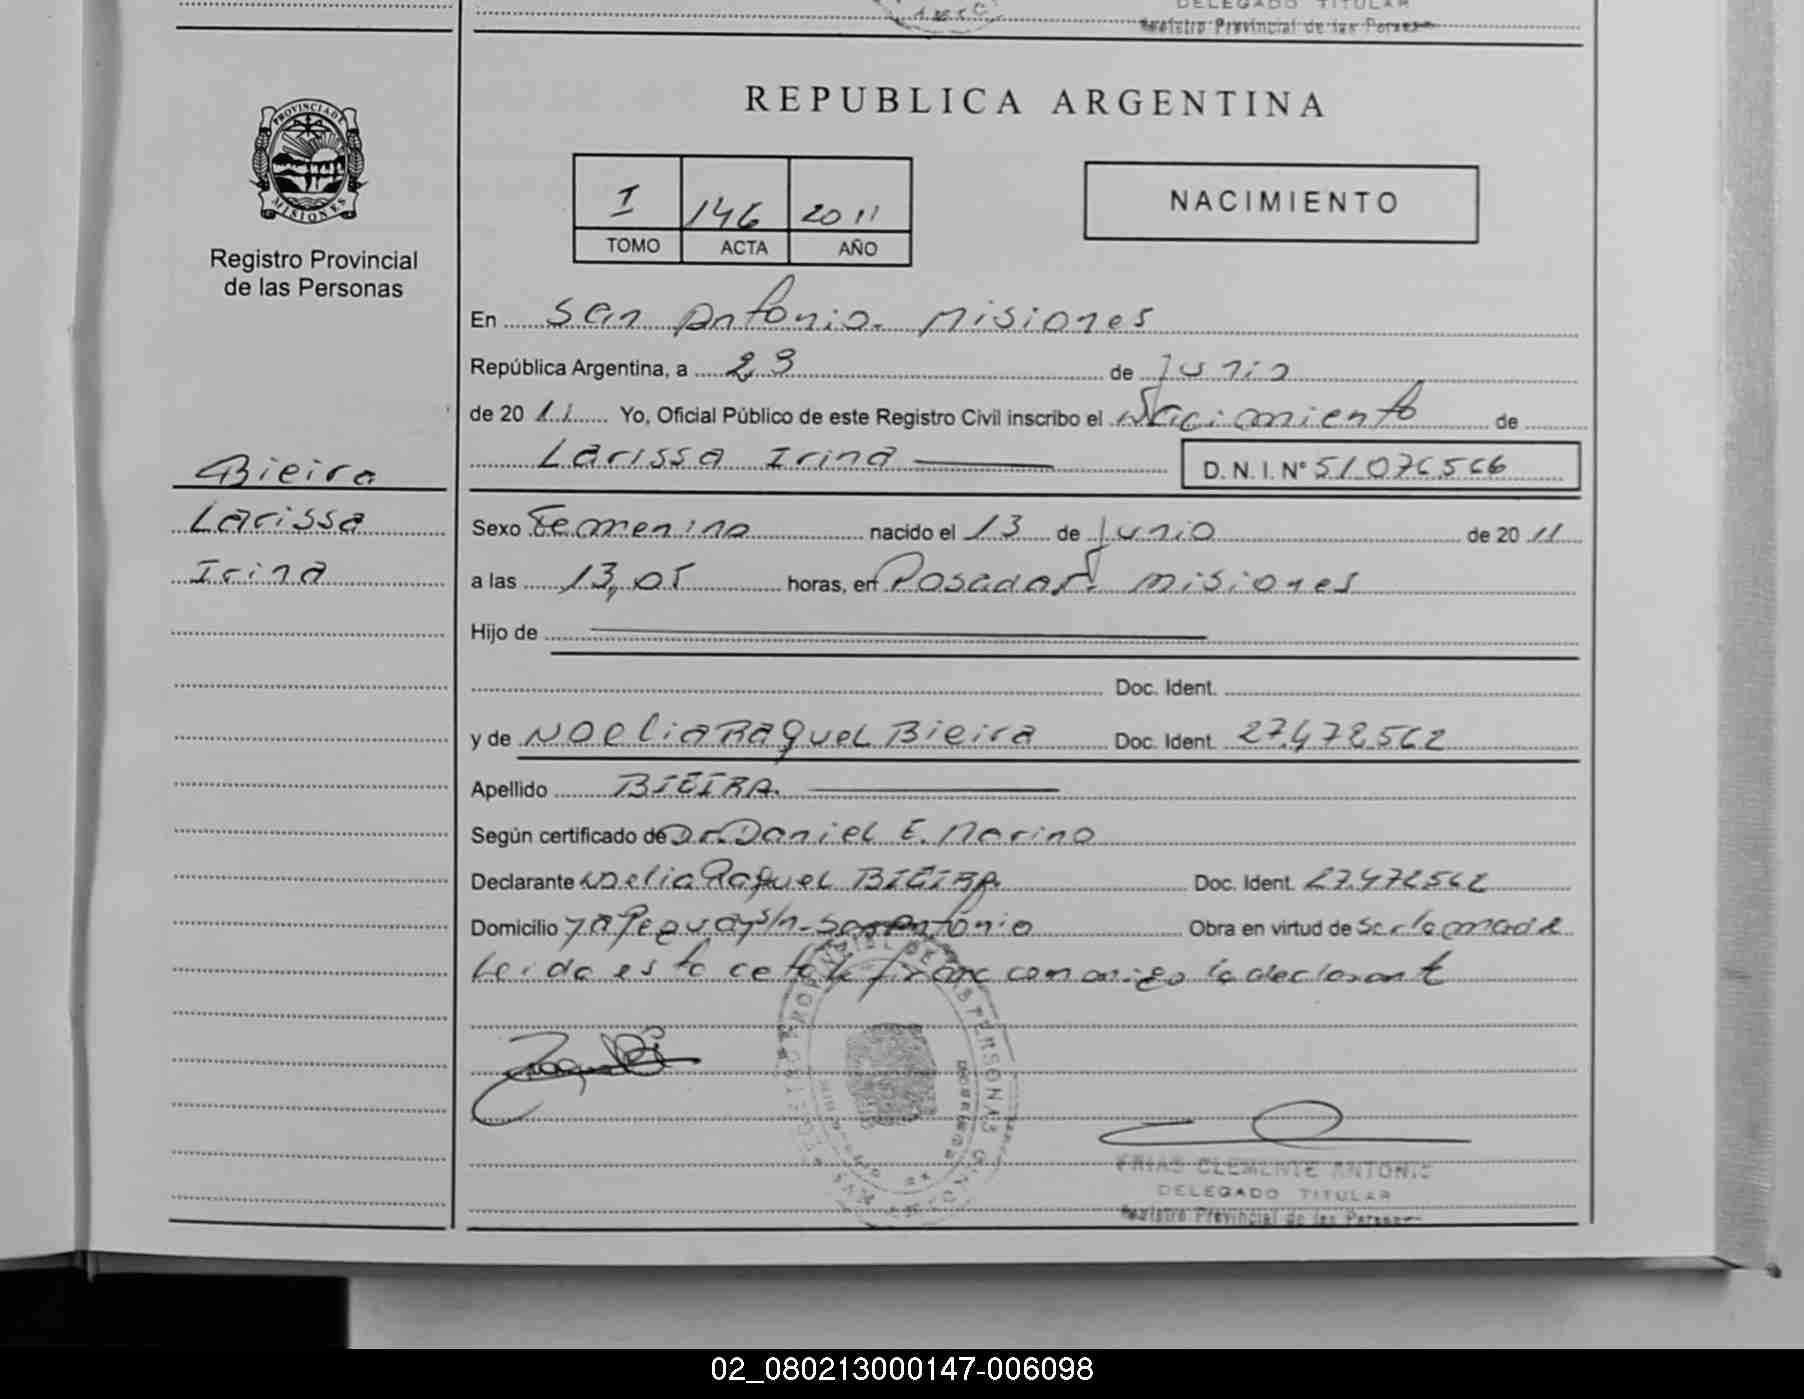 DELEGADO TITULAR
Registro Provincial de las Personas
PROVINCIA DE
MISIONES
Registro Provincial
de las Personas
REPUBLICA ARGENTINA
I 146 2011
TOMO ACTA AÑO
NACIMIENTO
En San Antonio. Misiones
República Argentina, a 23 de Junio
de 20 11 Yo, Oficial Público de este Registro Civil inscribo el Nacimiento de
Larissa Irina D. N. I. Nº 51.076.566
Bieira
Larissa
Irina
Sexo Femenino nacido el 13 de Junio de 20 11
a las 13,05 horas, en Posadas. Misiones
Hijo de
Doc. Ident.
y de Noelia Raquel Bieira Doc. Ident. 27.472.562
Apellido BIEIRA.
Según certificado de Dr. Daniel E. Merino
Declarante Noelia Raquel BIEIRA. Doc. Ident. 27.472562
Domicilio Yapeyu s/n - San Antonio Obra en virtud de Ser la madre
Leida esta acta la firma conmigo la declarante
FRIAS CLEMENTE ANTONIO
DELEGADO TITULAR
Registro Provincial de las Personas
02_080213000147-006098